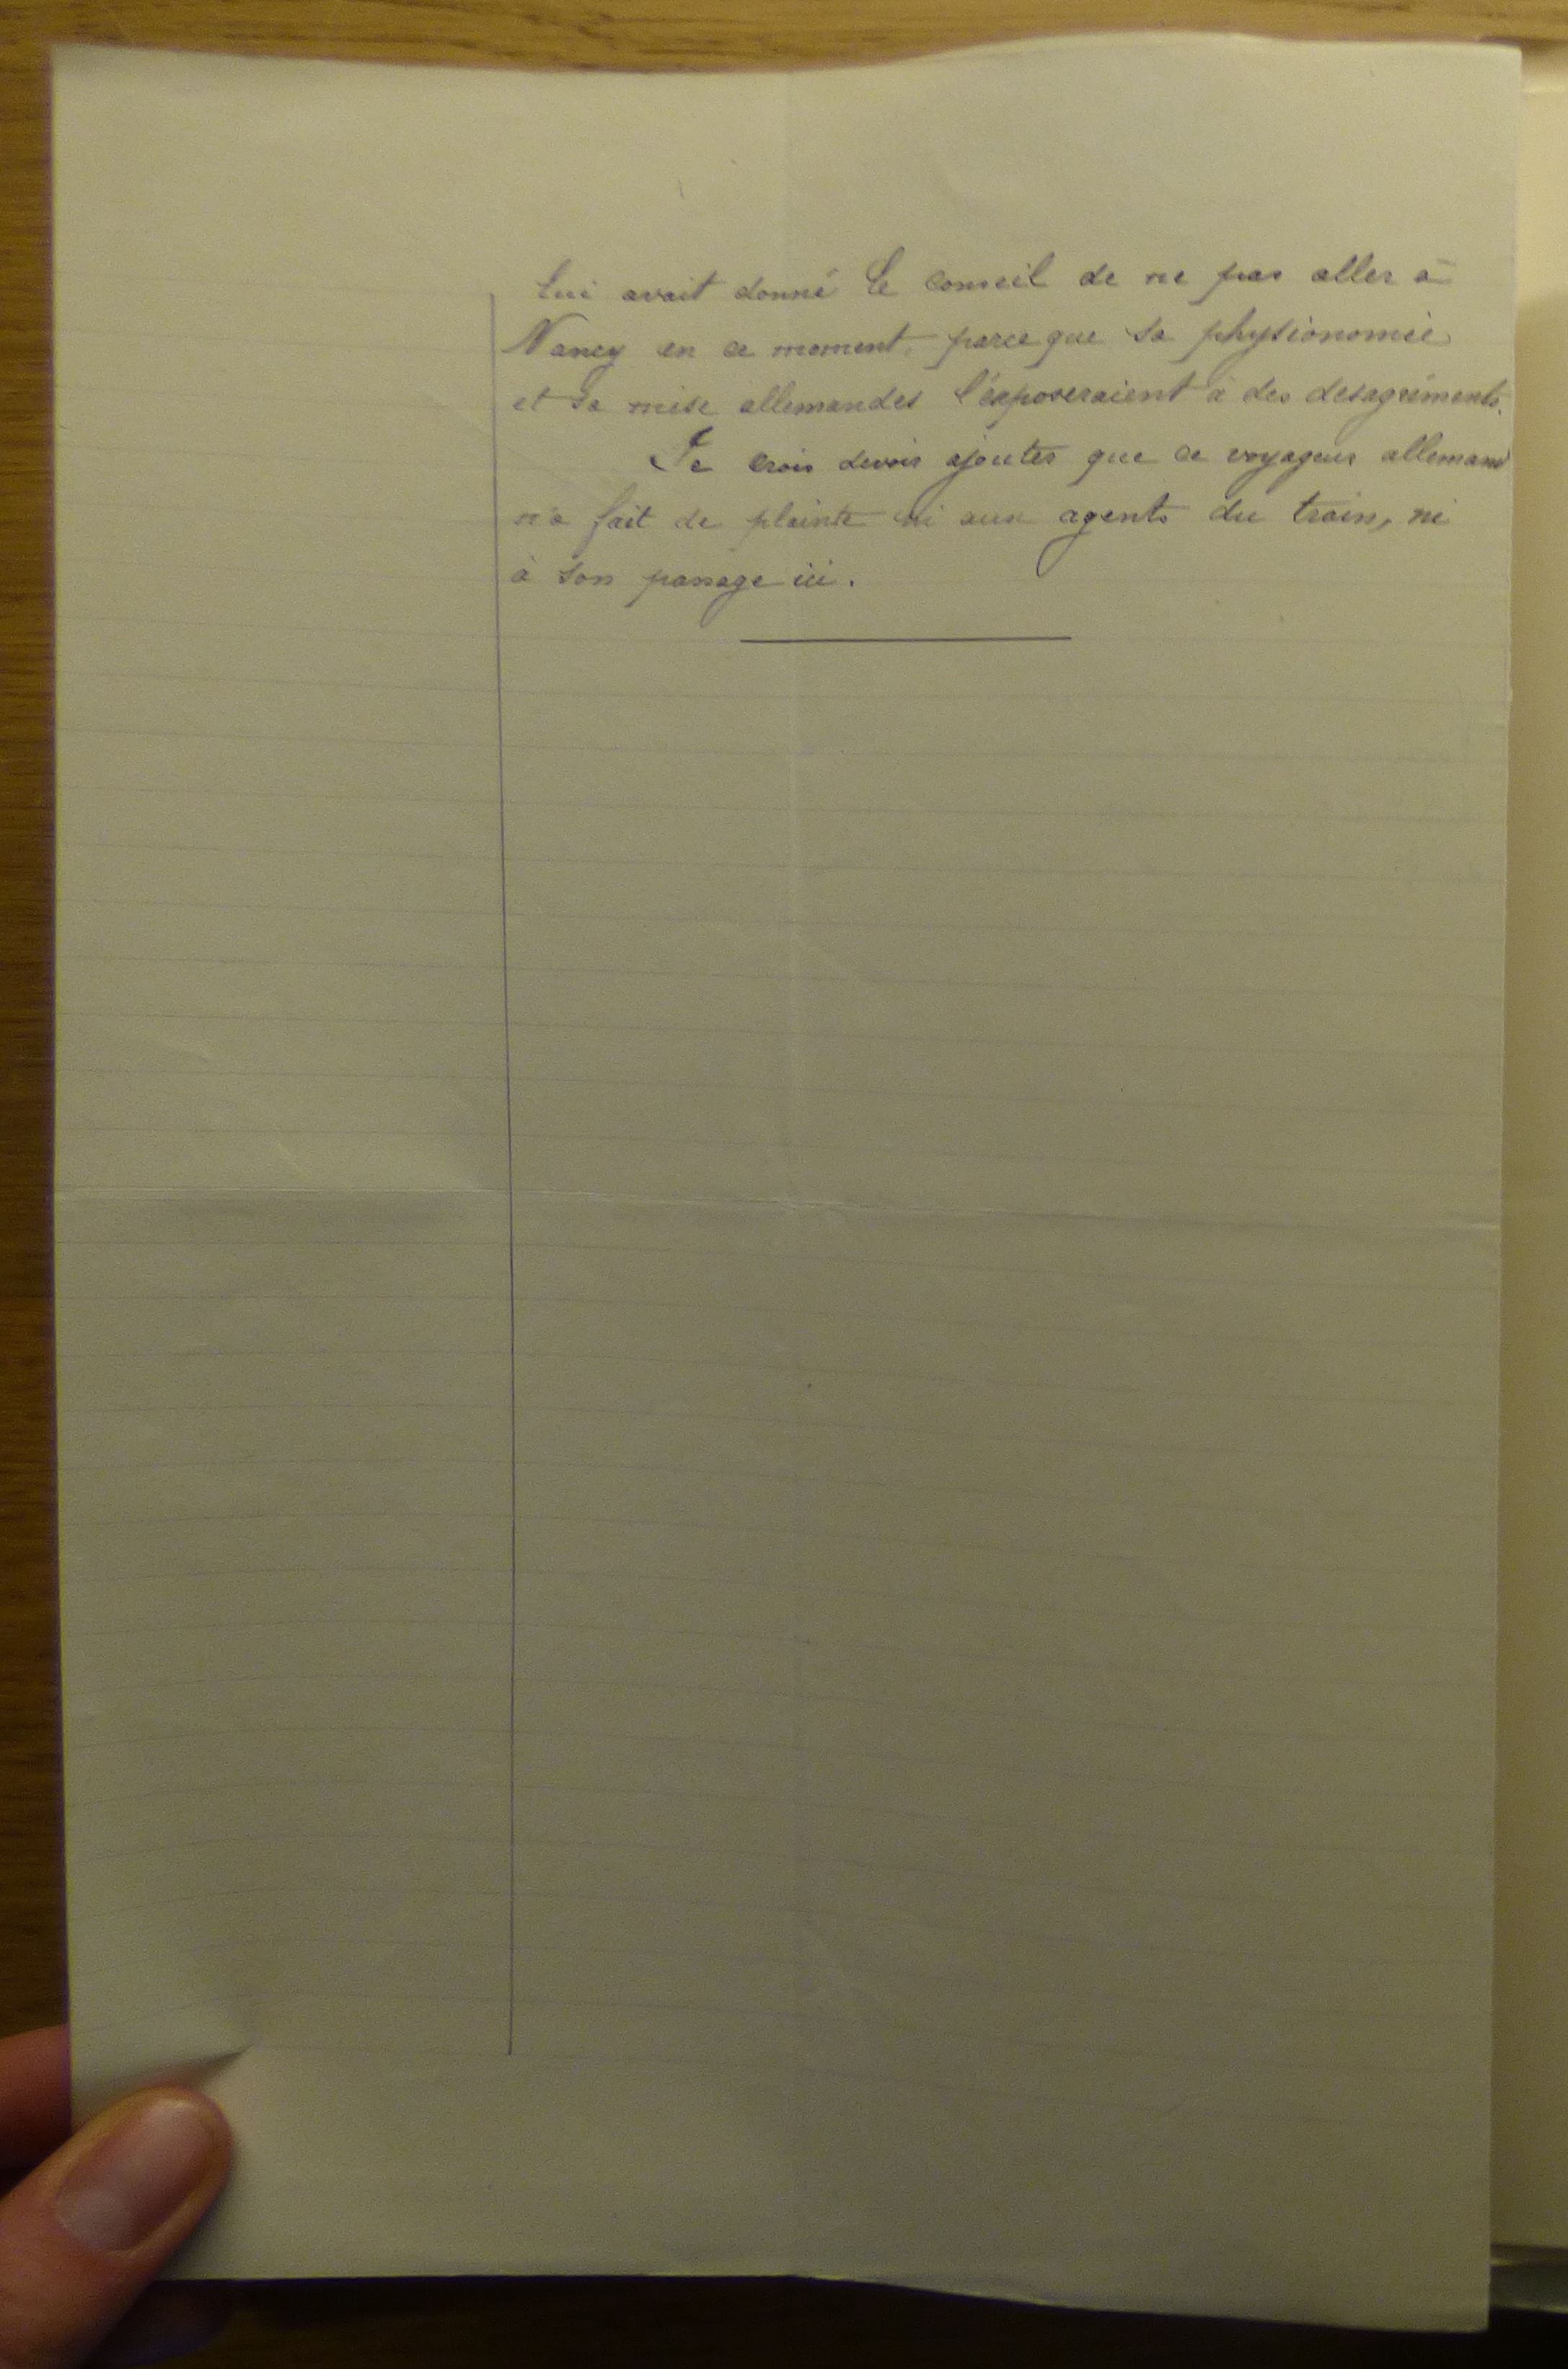 lui avait donné le conseil de ne pas aller à
Nancy en ce moment, parce que sa physionomie
et sa mise allemandes l'éxposeraient à des desagréments.
Je crois devoir ajouter que ce voyageur allemand
n'a fait de plainte ni aux agents du train, ni
à son passage ici.